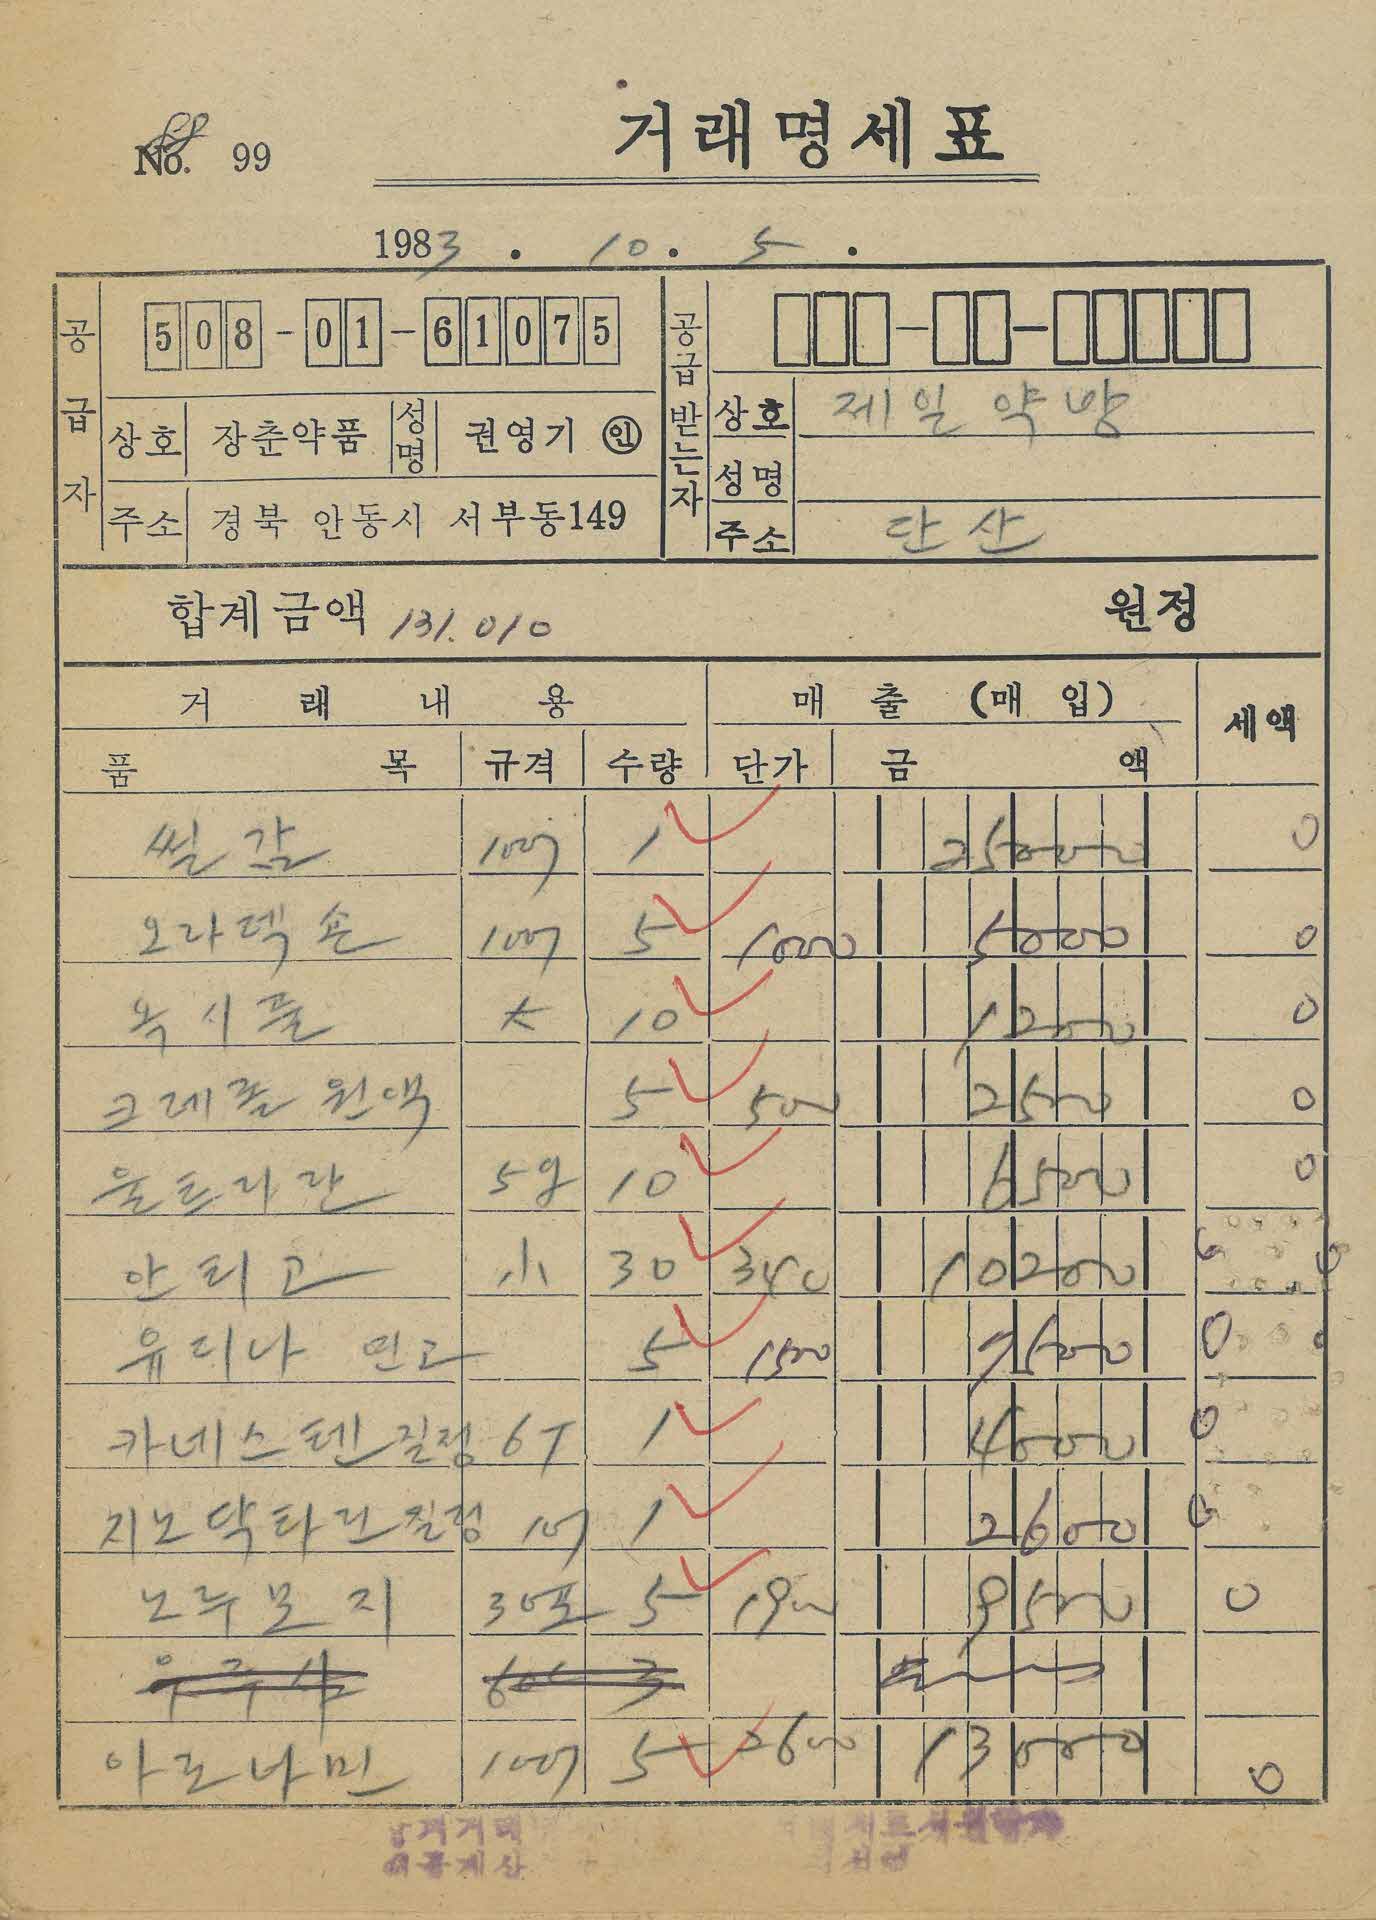 No. 99
거래명세표
1983 . 10 . 5 .
공급자
508-01-61075
상호 장춘약품 성명 권영기 인
주소 경북 안동시 서부동149
공급받는자
상호 제일약방
성명
주소 단산
합계금액 131.010 원정
거래내용 매출(매입) 세액
품목 규격 수량 단가 금액
씰감 100T 1 25000 0
오라덱손 100T 5 1000 5000 0
옥시풀 大 10 1200 0
크레졸 원액 5 500 2500 0
울트라란 5g 10 6500 0
안티고 小 30 340 10200
유리나 연고 5 1500 7500 0
카네스텐 질정 6T 1 4000 0
지노닥타린 질정 10T 1 2600
노루모지 30포 5 1900 9500 0
아로나민 100T 5 2600 13000 0